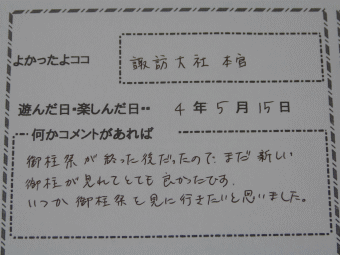 よかったよココ
諏訪大社 本宮
遊んだ日・楽しんだ日・・ 4年5月15日
何かコメントがあれば
御柱祭が終った後だったので、まだ新しい
御柱が見れてとても良かったです。
いつか御柱祭を見に行きたいと思いました。